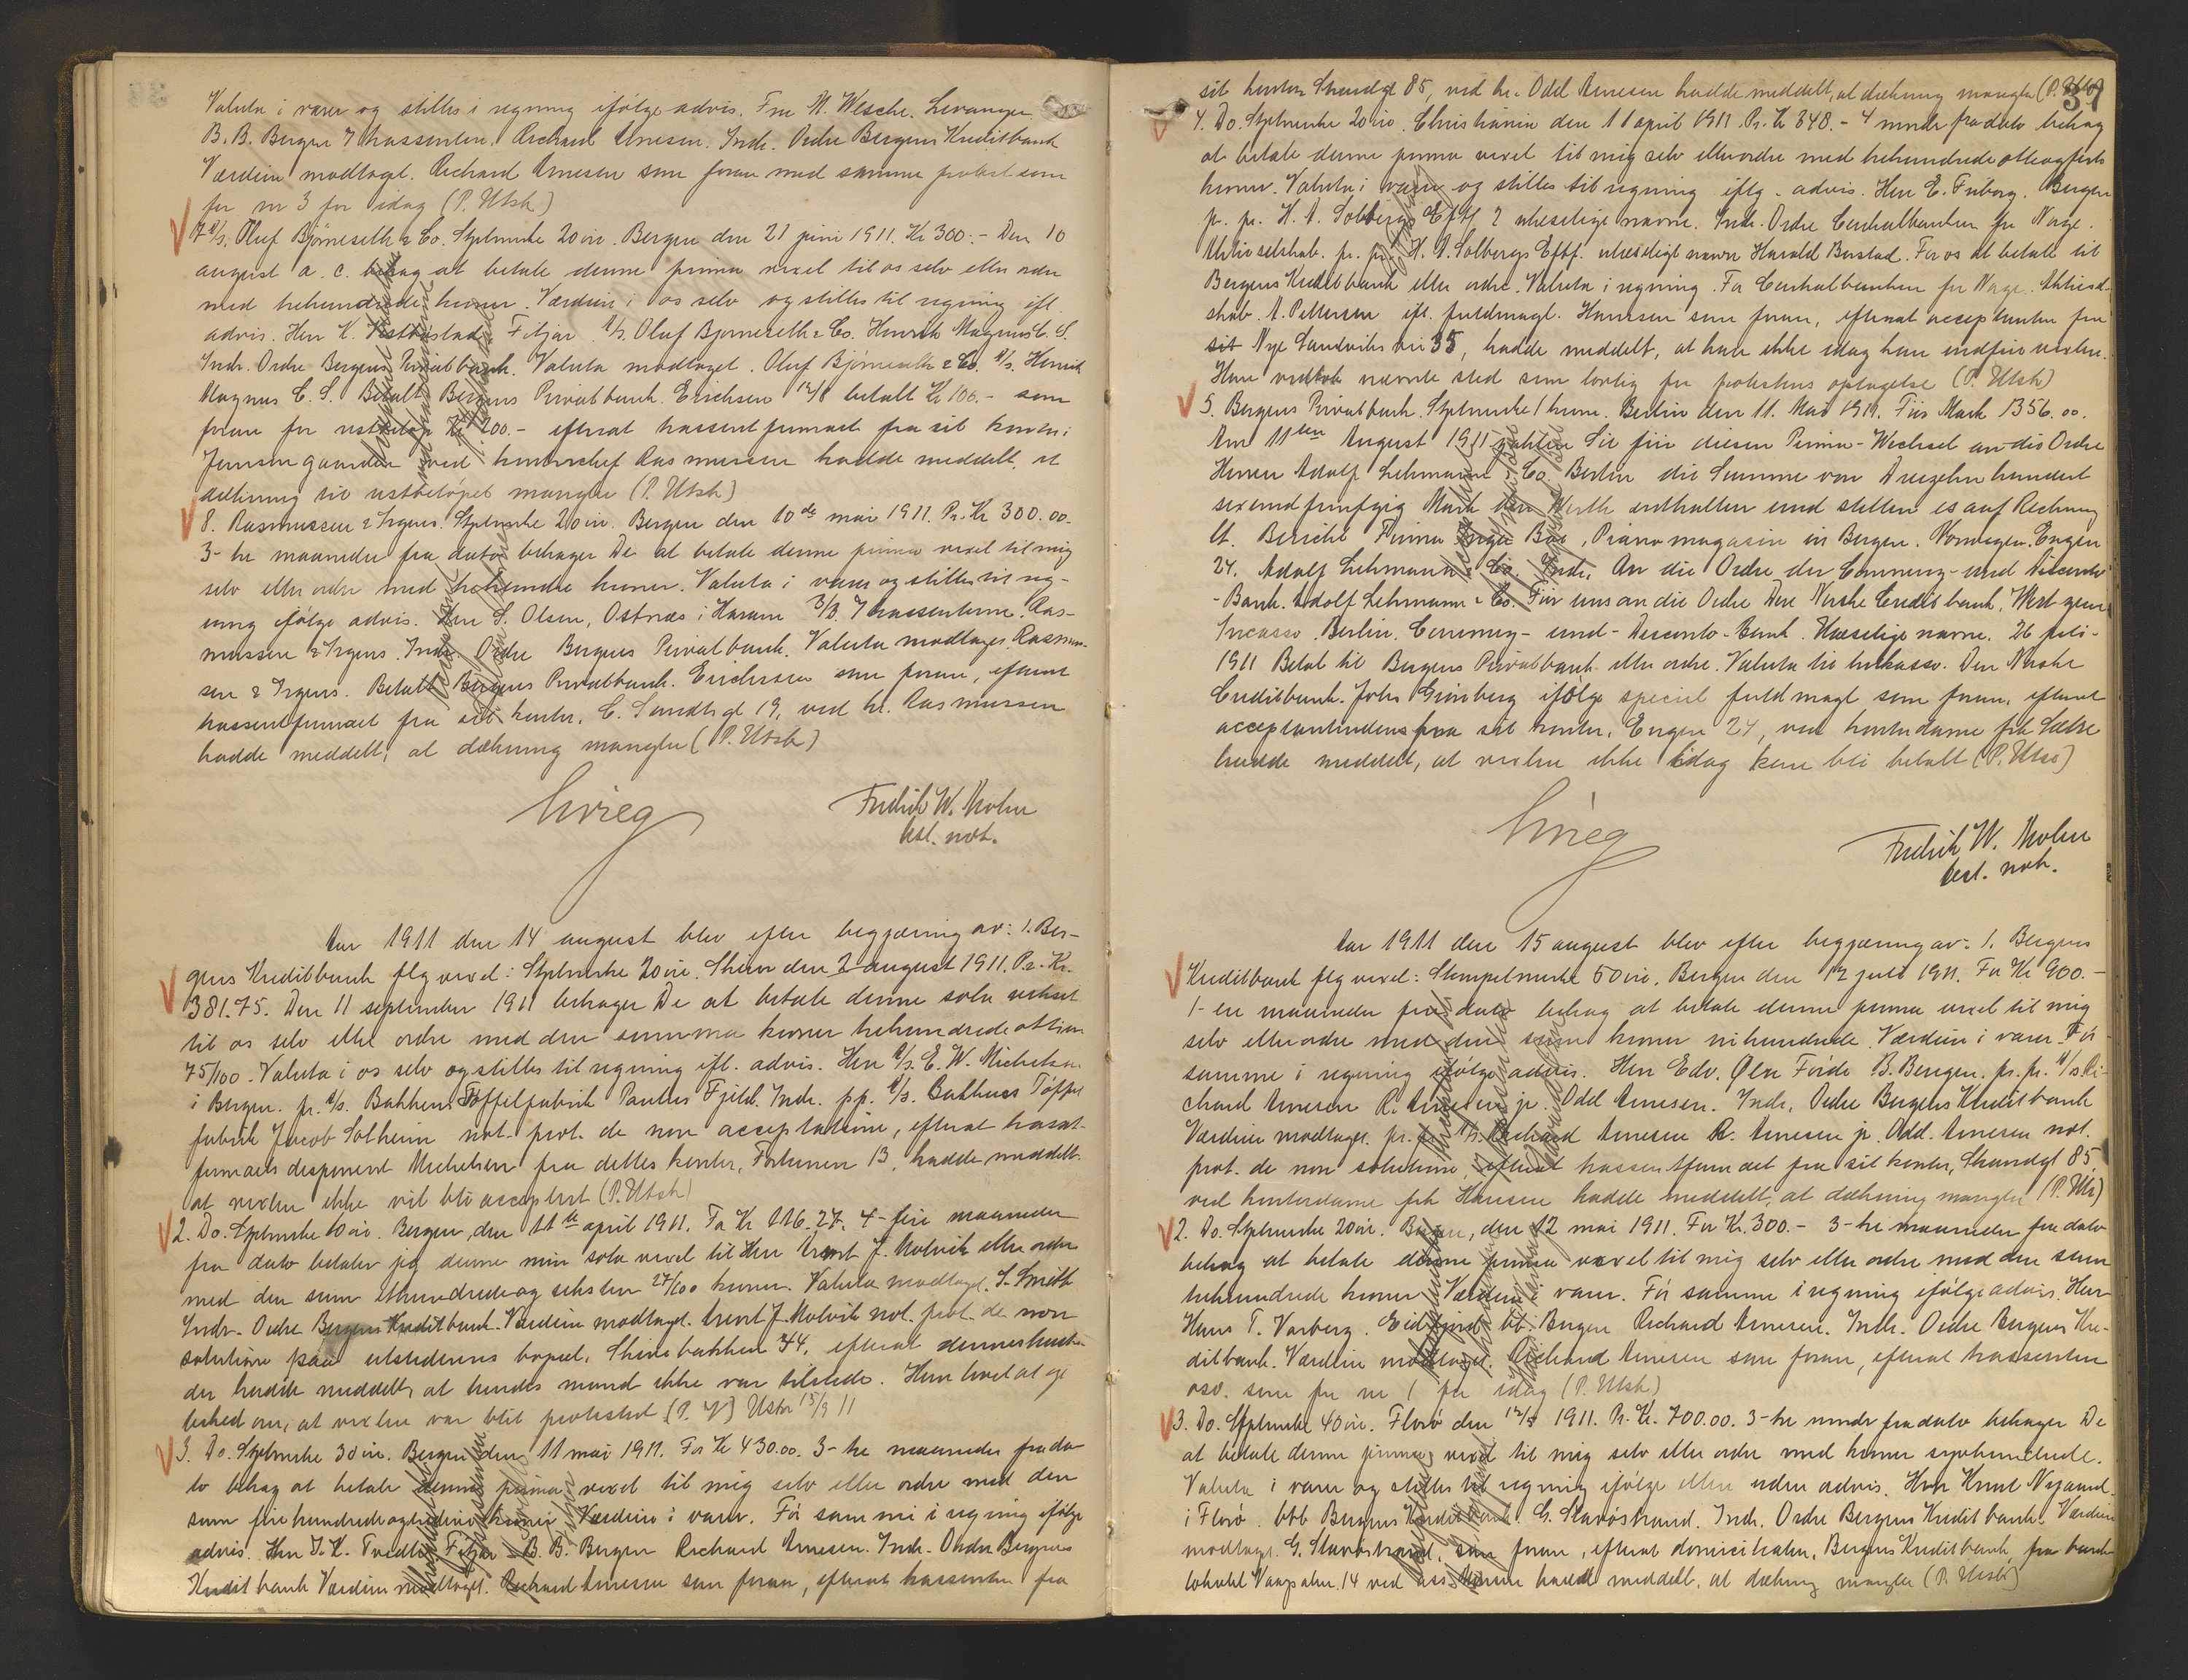 Valuta i varer og stilles i regning ifølge advis. Fru M. Wesche. Levanger
B. B. Bergen 7 trassenten. Richard Arnesen. Indr. Ordre Bergens Kreditbank
Værdien modtaget. Richard Arnesen som foran med samme protest som
for nr 3 for idag (P. Utsk)
7 A/s. Oluf Bjørneseth & Co. Stplmrke 20 øre. Bergen den 21 juni 1911. Kr 300.- Den 10
august a. c. behag at betale denne prima vexel til os selv eller ordre
med trehundrede kroner. Værdien i os selv og stilles til regning ifl.
advis. Herr K. Fitjar. A/s. Oluf Bjørneseth & Co. Henrik Magnus C. S.
Indr. Ordre Bergens Privatbank. Valuta modtaget. Oluf Bjørneseth & Co. A/s. Henrik
Magnus C. S. Betalt Bergens Privatbank. Erichsen 12/8 betalt Kr 100.- som
foran for restbeløp Kr 200.- efterat trassentfirmaet fra sit kontor i
Jensengaarden ved kontorchef Rasmussen hadde meddelt, at
dækning til restbeløpet mangler (P. Utsk)
8. Rasmussen & Irgens. Stplmrke 20 øre. Bergen den 10de mai 1911. Pr. Kr 300.00.
3-tre maaneder fra dato behager De at betale denne prima vexel til mig
selv eller ordre med trehundre kroner. Valuta i varer og stilles til reg-
ning ifølge advis. Herr S. Olsen, Ostnæs i Haram 3/B. 7 trassenterne. Ras-
mussen & Irgens. Indr. Ordre Bergens Privatbank. Valuta modtaget. Rasmus-
sen & Irgens. Betalt Bergens Privatbank. Erichsen som foran, efterat
trassentfirmaet fra sit kontor, C. Sundts gt 19, ved hr. Rasmussen
hadde meddelt, at dækning mangler (P. Utsk)
Fredrik W. Mohn
best. not.
Aar 1911 den 14 august blev efter begjæring av: 1. Ber-
gens Kreditbank flg vexel: Stplmrke 20 øre. Skien den 2 august 1911. Pr. Kr.
381.75. Den 11 september 1911 behager De at betale denne sola vexel
til os selv eller ordre med den summa kroner trehundrede ottien
75/100. Valuta i os selv og stilles til regning ifl. advis. Herr A/s. E. W. Michelsen
i Bergen. pr. A/s. Bakkens Tøffelfabrik Paulus Fjeld. Indr. pp. A/s. Bakkens Tøffel
fabrik Jacob Solheim not. prot. de non acceptatione, efterat trasat-
firmaets disponent Michelsen fra dettes kontor, Fortunen 13, hadde meddelt
at vexlen ikke vil bli acceptert (P. Utsk)
2. Do. Stplmrke 10 øre. Bergen, den 11te april 1911. For Kr 116.27. 4-fire maaneder
fra dato betaler jeg denne min sola vexel til Herr Arent J. Molvik eller ordre
med den sum ethundredeogseksten 27/100 kroner. Valuta modtaget. S. Smith
Indr. Ordre Bergens Kreditbank. Værdien modtaget. Arent J. Molvik not. prot. de non
solutione paa utstederens bopæl, Skivebakken 34, efterat dennes hustru
der hadde meddelt, at hendes mand ikke var tilstede. Hun lovet at gi
besked om, at vexlen var blit protestert (P. V) Utskr 15/9 11
3. Do. Stplmrke 30 øre. Bergen den 11 mai 1911. For Kr 430.00. 3-tre maaneder fra da-
to behag at betale denne prima vexel til mig selv eller ordre med den
sum firehundredeogtredive kroner Værdien i varer. Før samme i regning ifølge
advis. Herr J. K. Tvedte Fitjar B. B. Bergen Richard Arnesen. Indr. Ordre Bergens
Kreditbank Værdien modtaget. Richard Arnesen som foran, efterat trassenten fra
37
sit kontor Strandgt 85, ved hr. Odd Arnesen hadde meddelt, at dækning mangler (P.
4. Do. Stplmrke 20 øre. Christiania den 11 april 1911. Pr. Kr 348.- 4 mndr fra dato behag
at betale denne prima vexel til mig selv eller ordre med trehundrede otteogførti
kroner. Valuta i varer og stilles til regning iflg. advis. Herr E. Friborg. Bergen
p. pr. H. A. Solbergs Eftf. 2 ulæselige navne. Indr. Ordre Centralbanken for Norge.
Aktieselskab. pr. pr. H. A. Solbergs Eftf. ulæseligt navn Harald Borstad. For os at betale til
Bergens Kreditbank eller ordre. Valuta i regning. For Centralbanken for Norge. Aktiesel-
skab. A. Pettersen ifl. fuldmagt. Hansen som foran, efterat acceptanten fra
sit Nye Sandviksvei 35, hadde meddelt, at han ikke idag kan indfri vexlen.
Han vedtok nævnte sted som lovlig for protestens optagelse (P. Utsk)
5. Bergens Privatbank. Stplmrke 1 krone. Berlin den 11. Mai 1911. Für Mark 1356.00.
Am 11ten August 1911 zahlen Sie für diesen Prima-Wechsel an die Ordre
Herren Adolf Lehmann & Co. Berlin die Summe von Dreizehnhundert
sexundfünfzig Mark den Werth enthalten und stellen es auf Rechnung
lt. Bericht Firma Inga Bøe, Pianomagasin in Bergen. Norwegen. Engen
24. Adolf Lehmann & Co. Indr. An die Ordre der Commerz- und Disconto
-Bank. Adolf Lehmann & Co. Für uns an die Ordre Den Norske Creditbank, Wert zum
Incasso. Berlin. Commerz- und- Disconto-Bank. Ulæselige navne. 26 juli-
1911 Betal til Bergens Privatbank eller ordre. Valuta til inkasso. Den Norske
Creditbank. John Grønberg ifølge speciel fuldmagt som foran, efterat
acceptantinden fra sit kontor, Engen 24, ved kontordame frk Sætre
hadde meddelt, at vexlen ikke idag kan bli betalt (P. Utsk)
Fredrik W. Mohn
best. not.
Aar 1911 den 15 august blev efter begjæring av: 1. Bergens
Kreditbank flg vexel: Stempelmerke 50 øre. Bergen den 12 juli 1911. For Kr. 900.-
1-en maaneder fra dato behag at betale denne prima vexel til mig
selv eller ordre med den sum kroner nihundrede. Værdien i varer. Før
samme i regning ifølge advis. Herr Edv. Øen Førde B. Bergen. pr. pr. A/s Ri-
chard Arnesen R. Arnesen jr. Odd Arnesen. Indr. Ordre Bergens Kreditbank
Værdien modtaget. pr. pr. A/s. Richard Arnesen R. Arnesen jr. Odd. Arnesen not.
prot. de non solutione, efterat trassentfirmaet fra sit kontor, Strandgt 85,
ved kontordame frk Hansen hadde meddelt, at dækning mangler (P. Uts)
2. Do. Stplmrke 20 øre. Bergen, den 12 mai 1911. For Kr. 300.- 3-tre maaneder fra dato
behag at betale denne prima vexel til mig selv eller ordre med den sum
trehundrede kroner Værdien i varer. Før samme i regning ifølge advis. Herr
Hans T. Varberg. Eidfjord bb. Bergen Richard Arnesen. Indr. Ordre Bergens Kre-
ditbank. Værdien modtaget. Richard Arnesen som foran, efterat trassenten
osv. som for nr 1 for idag (P. Utsk)
3. Do. Stplmrke 40 øre. Florø den 12/5 1911. Pr. Kr. 700.00. 3-tre mndr fra dato behager De
at betale denne prima vexel til mig selv eller ordre med kroner syvhundrede.
Valuta i varer og stilles til regning ifølge eller uden advis. Herr Knut Nygaard
i Florø. btb Bergens Kreditbank. G. Stavøstrand. Indr. Ordre Bergens Kreditbank. Værdien
modtaget. G. Stavøstrand, som foran, efterat domiciliaten, Bergens Kreditbank, fra bank-
lokalet Vaagsalm. 14 ved ass. Hansen hadde meddelt, at dækning mangler (P. Utsk)